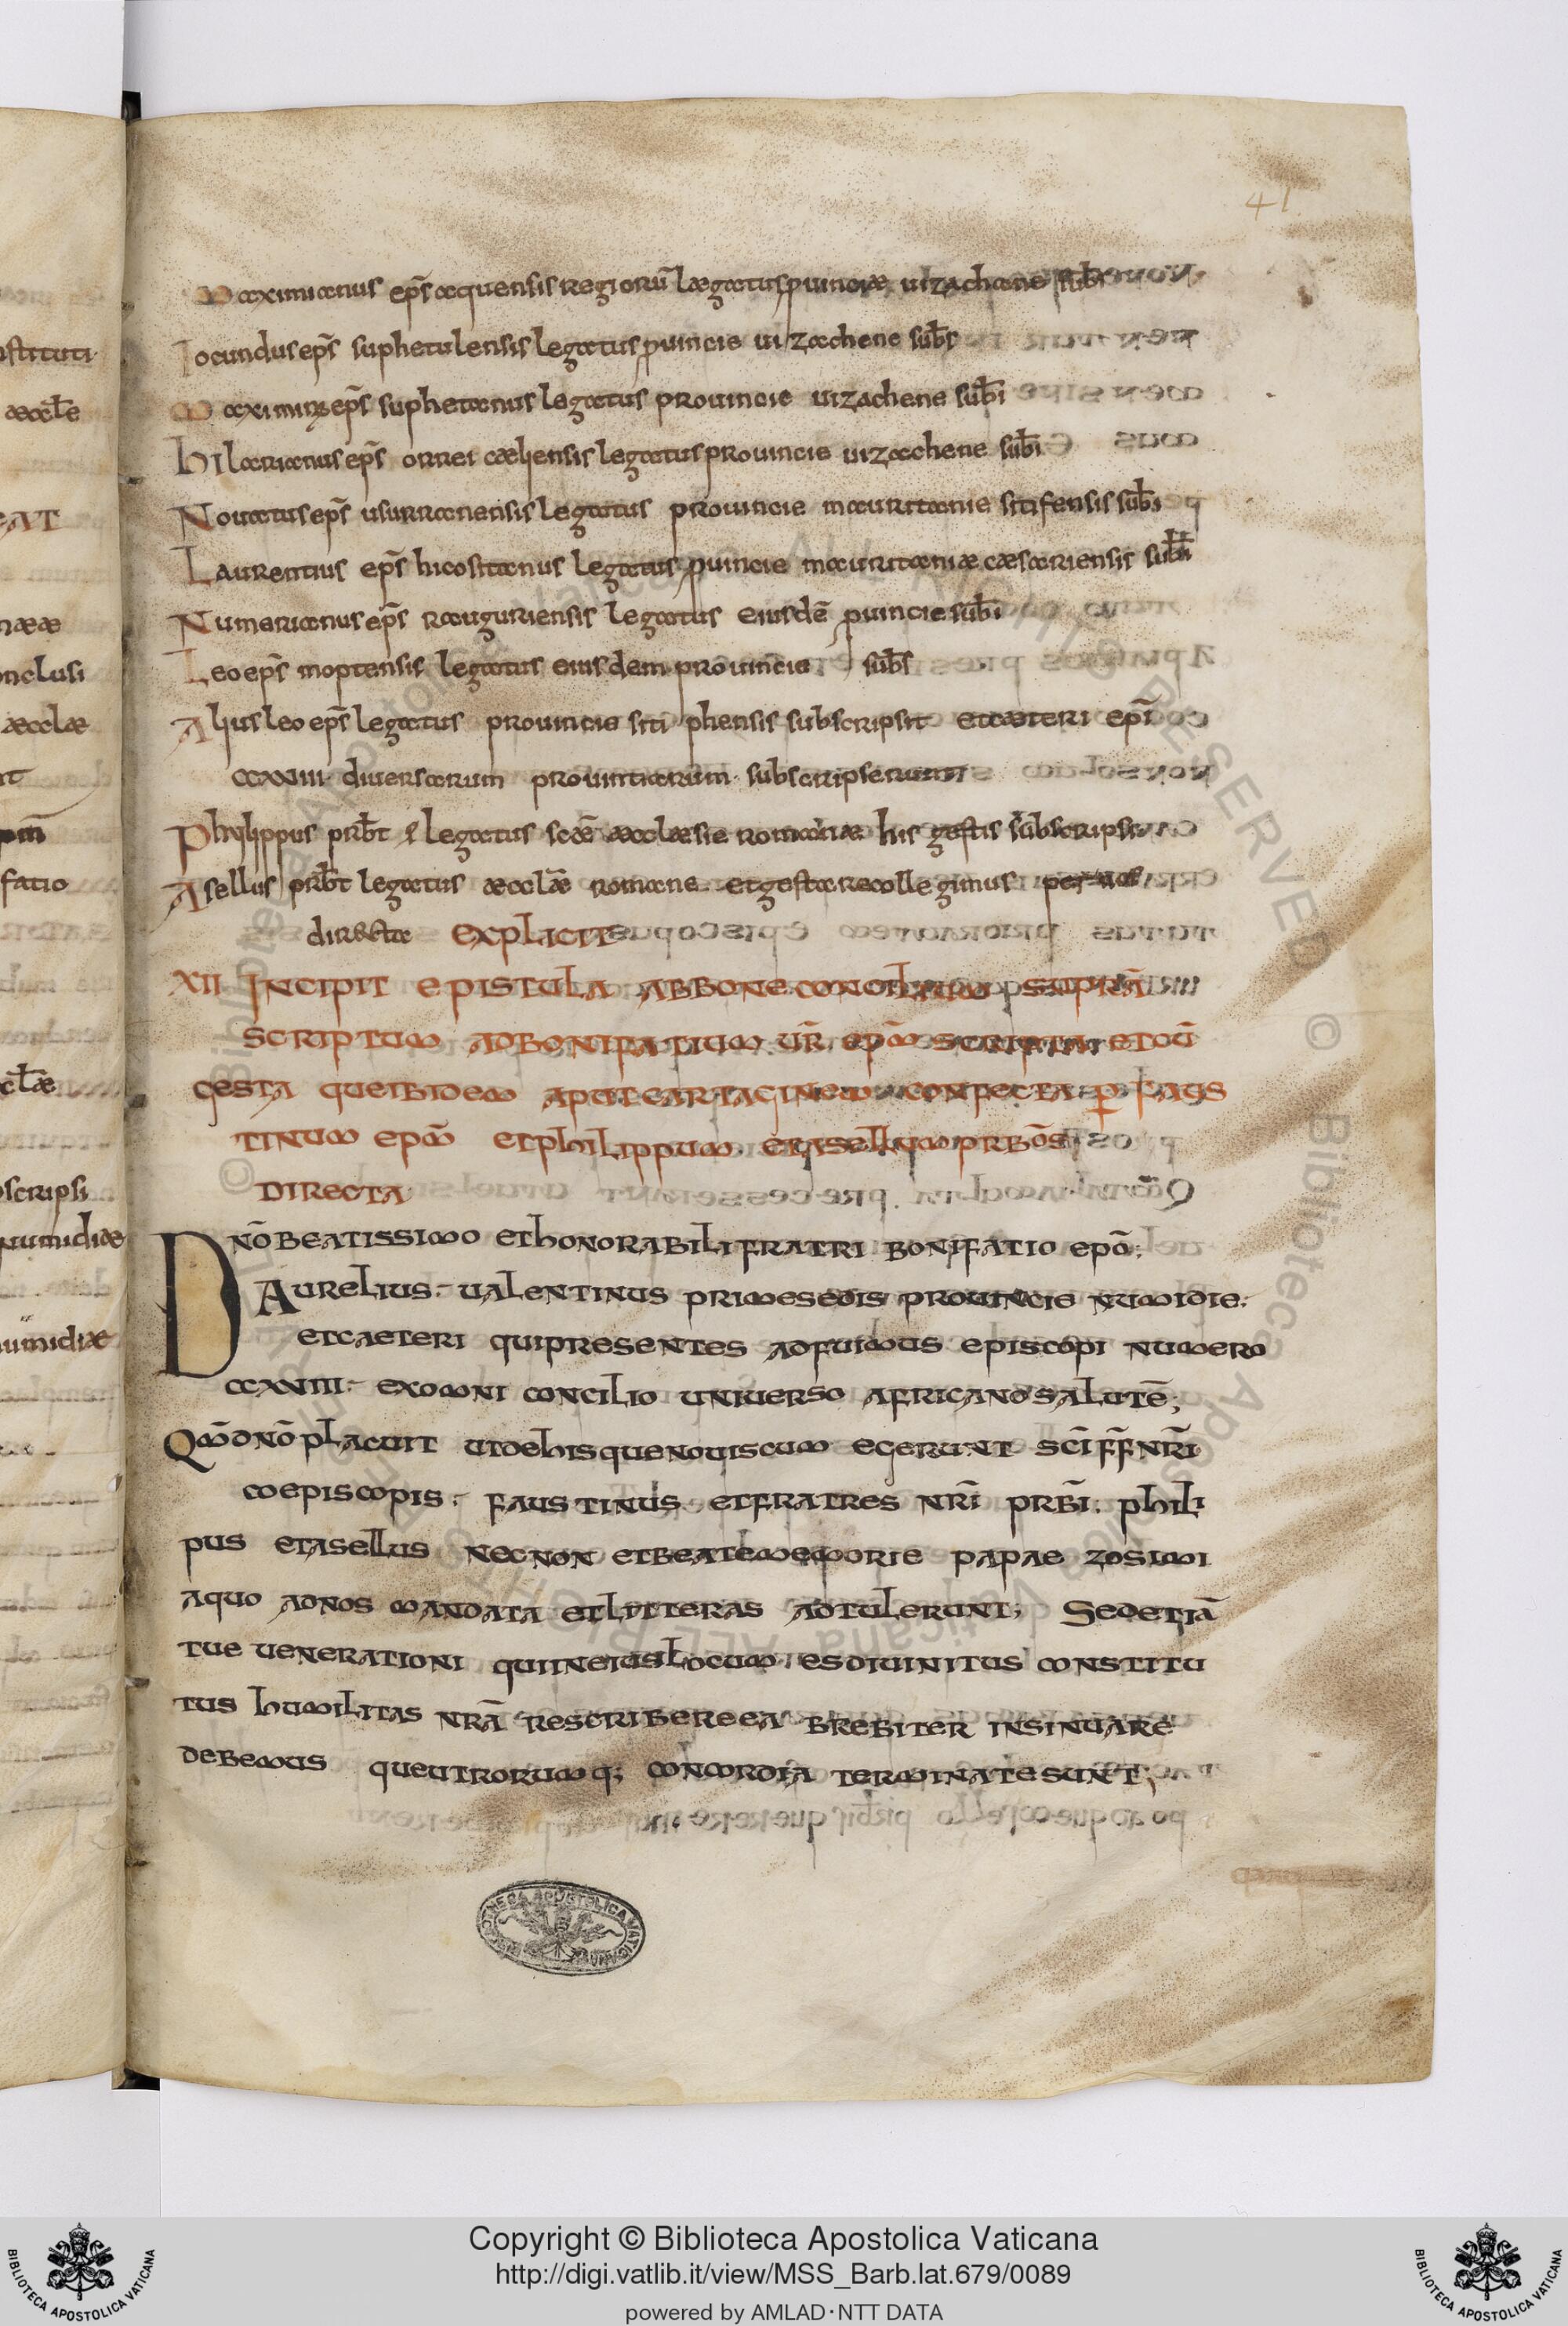 41
Maximianus ep̄s aquensis regiorū lægatus ꝓuinciæ uizachene sub̄s
Iocundus ep̄s suphetulensis legatus ꝓuincie uizachene sub̄s
Maximin; ep̄s suphetanus legatus prouincie uizachene sub̄i
hilarianus ep̄s orrei cæliensis legatus prouincie uizachene sub̄i
Nouatus ep̄s usurranensis legatus prouincie mauritanie sitifensis sub̄i
Laurentius ep̄s hicositanus legatus ꝓuincie mauritaniæ cæsariensis sub̄i
Numerianus ep̄s rauguriensis legatus eiusdē ꝓuincie sub̄i
Leo ep̄s moptensis legatus eiusdem prouincie sub̄s
Alius leo ep̄s legatus prouincie siti phensis subscripsit et cæteri ep̄i
CCXVIII diuersarum prouintiarum subscripserunt
Phylippus prb̄t & legatus scāe æcclæsie romanæ his gestis subscripsi
Asellus prb̄t legatus æcclāe romane et gesta recollegimus per nos
directa EXPLICIT
XII INCIPIT EPISTULA AB BONE CONCILIUM SUPRĀ
SCRIPTUM AD BONIFATIUM UR̄ EPM̄ SCRIPTA ET OŪ
GESTA QUE IBIDEM APUT CARTAGINEM CONFECTA P̱ FAUS
TINUM EPM̄ ET PHILIPPUM ET ASELLUM PRBO̅S
DIRECTA
DNŌ BEATISSIMO ET HONORABILI FRATRI BONIFATIO EPŌ;
AURELIUS UALENTINUS PRIMESEDIS PROUINCIE NUMIDIE
ET CAETERI QUI PRESENTES ADFUIMUS EPISCOPI NUMERO
CCXVIII EX OMNI CONCILIO UNIUERSO AFRICANO SALUTĒ;
QM̄ DNŌ PLACUIT UT DE HIS QUE NOUISCUM EGERUNT SCĪ FF̄ NRĪ
COEPISCOPIS FAUSTINUS ET FRATRES NRĪ PRBĪ. PHILI
PUS ET ASELLUS NECNON ET BEATE MEMORIE PAPAE ZOSIMI
A QUO AD NOS MANDATA ET LITTERAS ADTULERUNT; SED ETIĀ
TUE UENERATIONI QUI IN EIUS LOCUM ES DIUINITUS CONSTITU
TUS HUMILITAS NRĀ RESCRIBERE EA BREBITER INSINUARE
DEBEMUS QUE UTRORUMQ; CONCORDIA TERMINATE SUNT;
Copyright © Biblioteca Apostolica Vaticana
http://digi.vatlib.it/view/MSS_Barb.lat.679/0089
powered by AMLAD·NTT DATA